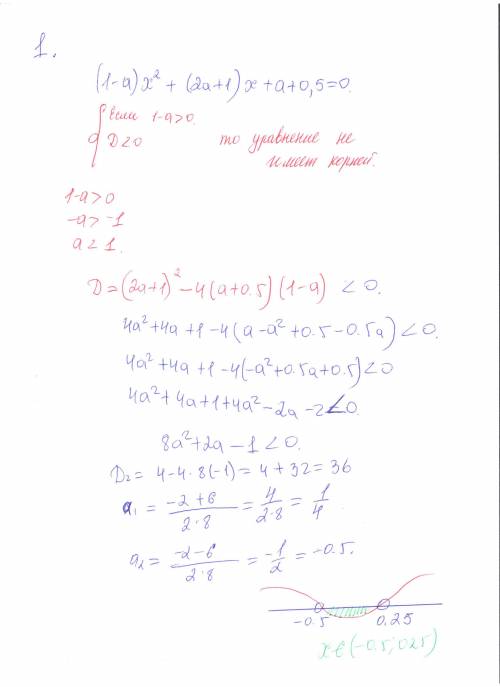 1.
(1-a)x² + (2a+1)x + a+0,5=0.
Если 1-a>0.
D<0 то уравнение не
имеет корней.
1-a>0
-a>-1
a<1.
D=(2a+1)²-4(a+0.5)(1-a) <0.
4a²+4a+1-4(a-a²+0.5-0.5a)<0.
4a²+4a+1-4(-a²+0.5a+0.5)<0
4a²+4a+1+4a²-2a-2<0.
8a²+2a-1<0.
D₂= 4-4·8(-1)=4+32=36
a₁ = (-2+6)/(2·8) = 4/(2·8) = 1/4
a₂ = (-2-6)/(2·8) = -1/2 = -0.5.
-0.5 0.25
x∈(-0.5;0.25)